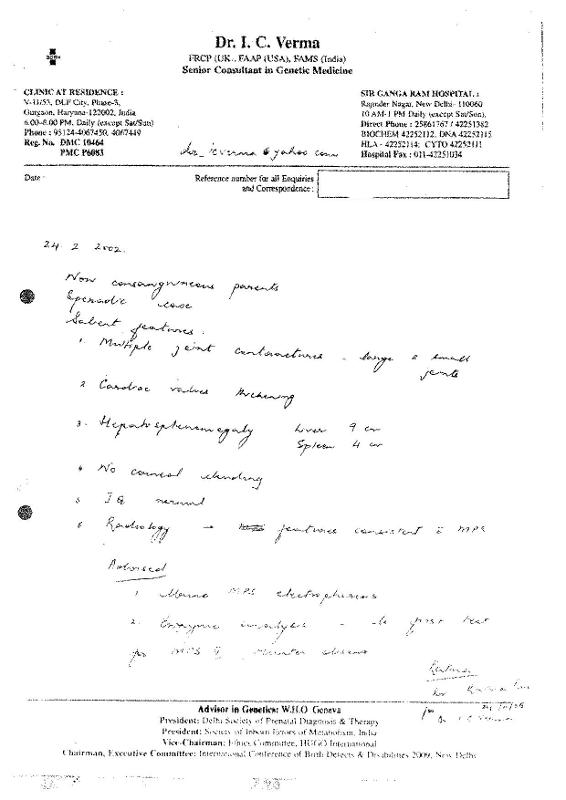 Dr. I. C. Verma
FRCP (UK), FAAP (USA), FAMS (India)
Senior Consultant in Genetic Medicine
CLINIC AT RESIDENCE :
V-11/53, DLF City, Phase-3,
Gurgaon, Haryana-122002, India
6.00-8.00 PM, Daily (except Sat/Sun)
Phone : 95124-4067450, 4067449
Reg. No. DMC 10464
PMC P6083
SIR GANGA RAM HOSPITAL :
Rajinder Nagar, New Delhi- 110060
10 AM-1 PM Daily (except Sat/Sun),
Direct Phone : 25861767 / 42251382
BIOCHEM 42252112, DNA 42252115
HLA - 42252114; CYTO 42252111
Hospital Fax : 011-42251034
dr_icverma@yahoo.com
Date :
Reference number for all Enquiries
and Correspondence :
24. 2 2002.
Non consanguineous parents
Sporadic case
Salient features.
1. Multiple joint contractures - large & small
joints
2 Cardiac valves thickening
3. Hepatosplenomegaly Liver 9 cm
Spleen 4 cm
4 No corneal clouding
5 IQ normal
6 Radiology → features consistent c̄ MPS
Advised
1. MPS electrophoresis
2. Enzyme analysis - first test
for MPS Hunter disease
Dr
for
Dr
Advisor in Genetics: W.H.O Geneva
President: Delhi Society of Prenatal Diagnosis & Therapy
President: Society of Inborn Errors of Metabolism, India
Vice-Chairman: Ethics Committee, HUGO International
Chairman, Executive Committee: International Conference of Birth Defects & Disabilities 2009, New Delhi